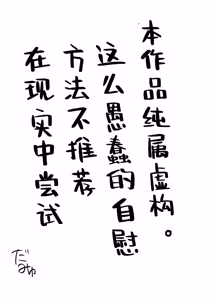 本作品纯属虚构。
这么愚蠢的自慰
方法不推荐
在现实中尝试
だみゅ